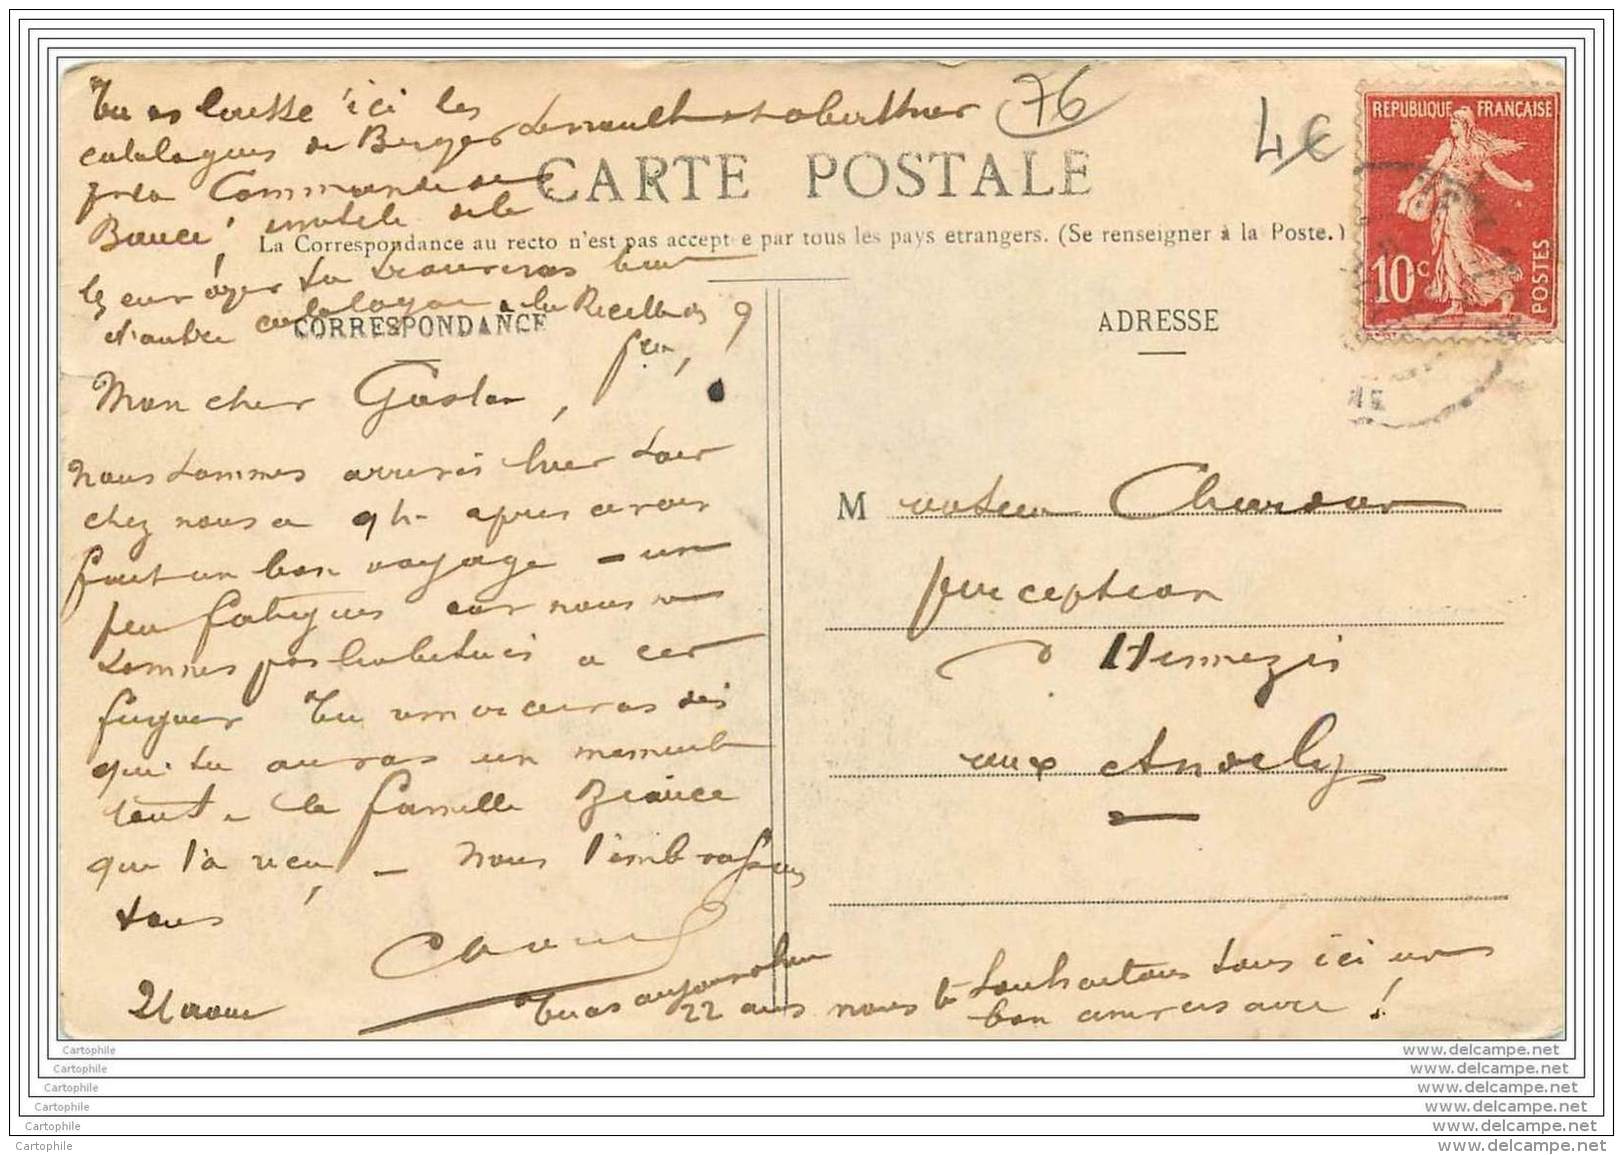 Tu as laissé ici les
catalogues de Berger Levrault et oberthur
76
4€
REPUBLIQUE FRANÇAISE
10c
POSTES
CARTE POSTALE
près Commande de
Bauce! inutile de le
La Correspondance au recto n'est pas accepté e par tous les pays etrangers. (Se renseigner à la Poste.)
tu trouveras bien
d'autre catalogue à la Recette
CORRESPONDANCE
ADRESSE
Mon cher Gaston,
nous sommes arrivés hier soir
chez nous a 9h- apres avoir
fait un bon voyage - un
peu fatigués car nous ne
sommes pas habitués a cer
Tu dès
que tu auras un moment
la famille Biauce
que l'a - nous t'embrassons
tous
21 aout
Tu as aujourdhui
22 ans nous te souhaitons tous ici un
bon anniversaire!
M onsieur Chardar
perception
d' Hennezis
aux Andelys
Cartophile
Cartophile
Cartophile
Cartophile
Cartophile
Cartophile
www.delcampe.net
www.delcampe.net
www.delcampe.net
www.delcampe.net
www.delcampe.net
www.delcampe.net